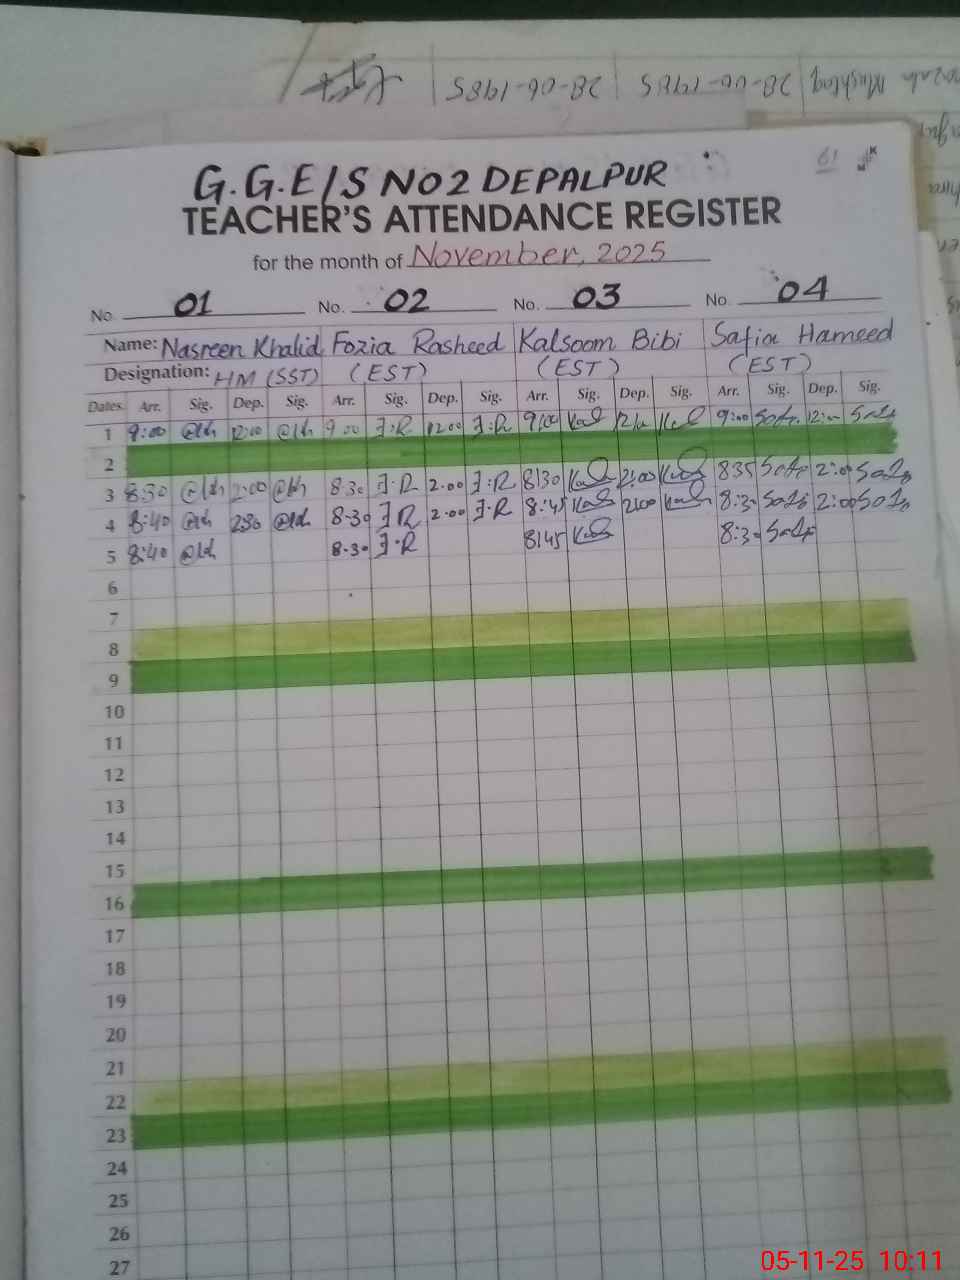 28-06-1985 28-06-1985 Mushtaq
61
G.G.E/S NO2 DEPALPUR
TEACHER'S ATTENDANCE REGISTER
for the month of November, 2025
No. 01 No. 02 No. 03 No. 04
Name: Nasreen Khalid Fozia Rasheed Kalsoom Bibi Safia Hameed
Designation: HM (SST) (EST) (EST) (EST)
Dates Arr. Sig. Dep. Sig. Arr. Sig. Dep. Sig. Arr. Sig. Dep. Sig. Arr. Sig. Dep. Sig.
1 9:00 12:00 9:00 F.R 12:00 F.R 9:00 Kal Kal 9:00 Safi 12:00 Safi
2
3 8:30 2:00 8.30 F.R 2.00 F.R 8:30 Kal 2:00 Kal 835 Safi 2:00 Safi
4 8:40 230 8-30 F.R 2.00 F.R 8:45 Kal 2:00 Kal 8:30 Safi 2:00 Safi
5 8:40 8-30 F.R 8:45 Kal 8:30 Safi
6
7
8
9
10
11
12
13
14
15
16
17
18
19
20
21
22
23
24
25
26
27
05-11-25 10:11